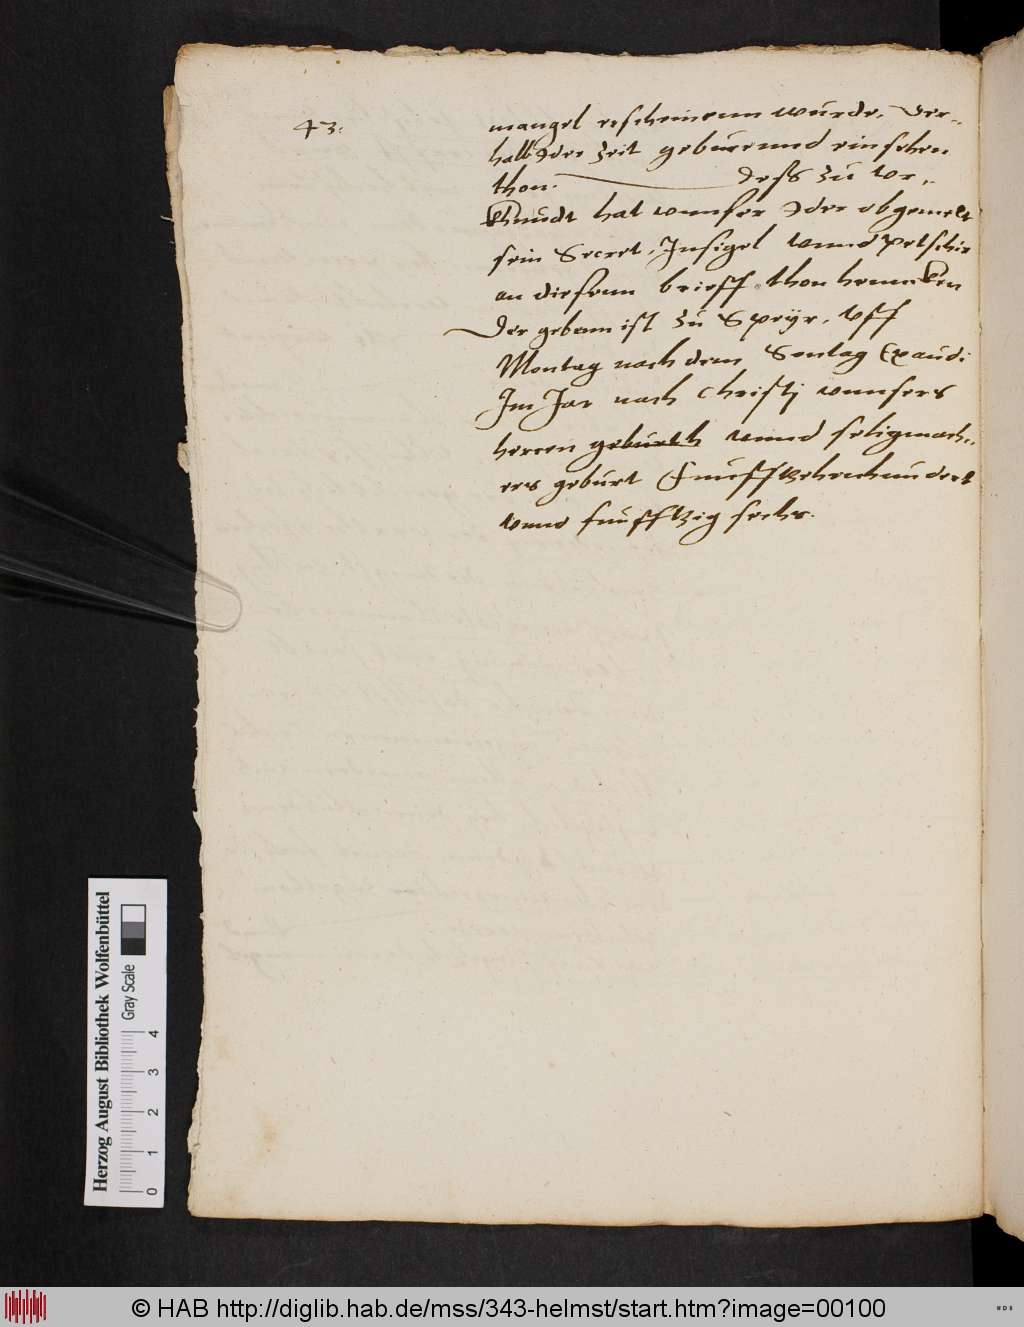 43.
mangel erscheinenn wurde. Der-
halb Jder zeit geburennd einsehen
thon. Dess zu vr-
khundt hat vnnser Jder obgemelt
sein Secret, Insigel vnnd Petschir
an diesenn brieff thon hencken
Der geben ist zu Speyr. Vff
Montag nach dem Sontag Exaudi
Im Jar nach Christi vnnsers
herren geburth vnnd seligmach-
ers geburt Funfftzehenhundert
vnnd funfftzig sechs.
Herzog August Bibliothek Wolfenbüttel
Gray Scale
0 1 2 3 4
© HAB http://diglib.hab.de/mss/343-helmst/start.htm?image=00100